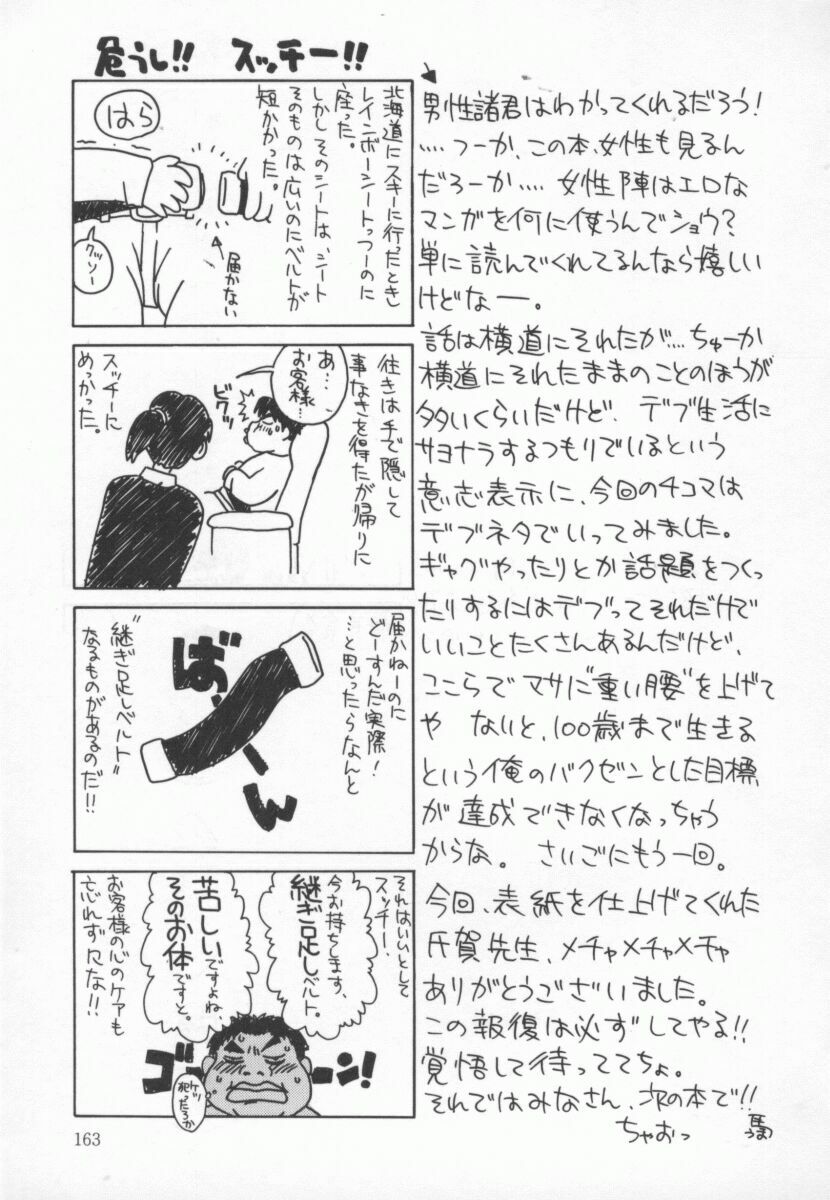 危うし!! スッチー!!
北海道にスキーに行ったとき
レインボーシートっつーのに
座った。
しかしそのシートは、シート
そのものは広いのにベルトが
短かかった。
はら
届かない
クソー
往きは手で隠して
事なきを得たが帰りに
スッチーに
めっかった。
あ…
お客様…
ビクッ
届かねーのに
どーすんだ実際!
…と思ったらなんと
"継ぎ足しベルト"
なるものがあるのだ!!
ばーーん
それはいいとして
スッチー、
今お持ちします、
継ぎ足しベルト。
苦しいですよね、
そのお体ですと。
お客様の心のケアも
忘れずにな!!
ゴーーン!
男性諸君はわかってくれるだろう!
…つーか、この本、女性も見るん
だろーか…. 女性陣はエロな
マンガを何に使うんでショウ?
単に読んでくれてるんなら嬉しい
けどなー。
話は横道にそれたが…ちゅーか
横道にそれたままのことのほうが
多いくらいだけど、デブ生活に
サヨナラするつもりでいるという
意志表示に、今回の4コマは
デブネタでいってみました。
ギャグやったりとか話題をつくっ
たりするにはデブってそれだけで
いいことたくさんあるんだけど、
ここらでマサに"重い腰"を上げて
や ないと、100歳まで生きる
という俺のバクゼンとした目標
が達成できなくなっちゃう
からな。 さいごにもう一回。
今回、表紙を仕上げてくれた
氏賀先生、メチャメチャメチャ
ありがとうございました。
この報復は必ずしてやる!!
覚悟して待っててちょ。
それではみなさん、次の本で!!
ちゃおっ
163